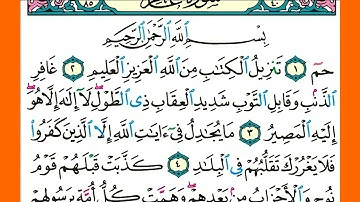 بِسْمِ ٱللَّهِ ٱلرَّحْمَٰنِ ٱلرَّحِيمِ
حمٓ ۝١ تَنزِيلُ ٱلْكِتَٰبِ مِنَ ٱللَّهِ ٱلْعَزِيزِ ٱلْعَلِيمِ ۝٢ غَافِرِ
ٱلذَّنۢبِ وَقَابِلِ ٱلتَّوْبِ شَدِيدِ ٱلْعِقَابِ ذِى ٱلطَّوْلِ ۖ لَآ إِلَٰهَ إِلَّا هُوَ ۖ
إِلَيْهِ ٱلْمَصِيرُ ۝٣ مَا يُجَٰدِلُ فِىٓ ءَايَٰتِ ٱللَّهِ إِلَّا ٱلَّذِينَ كَفَرُوا۟
فَلَا يَغْرُرْكَ تَقَلُّبُهُمْ فِى ٱلْبِلَٰدِ ۝٤ كَذَّبَتْ قَبْلَهُمْ قَوْمُ
نُوحٍ وَٱلْأَحْزَابُ مِنۢ بَعْدِهِمْ ۖ وَهَمَّتْ كُلُّ أُمَّةٍۭ بِرَسُولِهِمْ